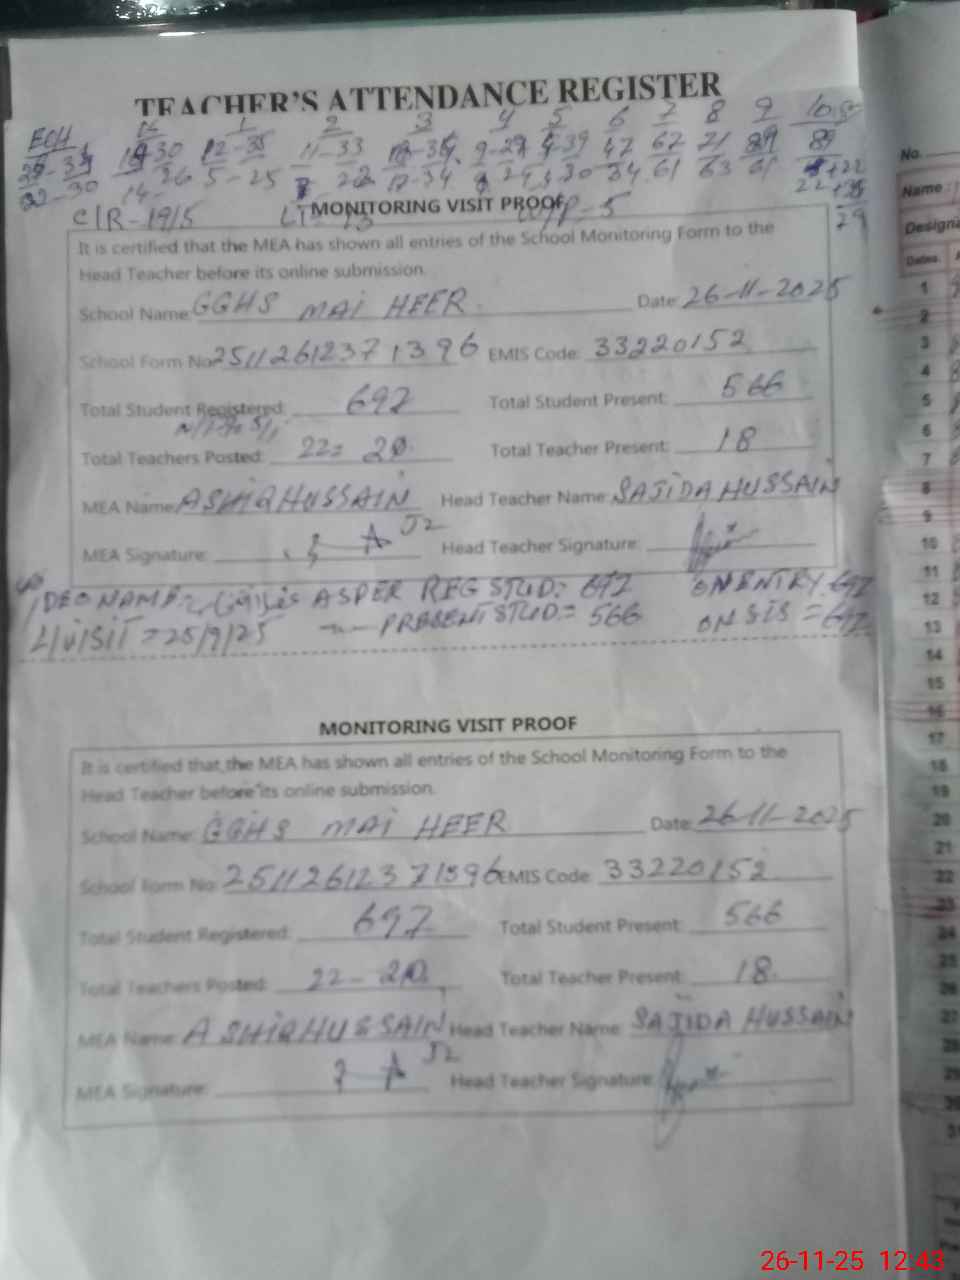 TEACHER'S ATTENDANCE REGISTER
ECH K 1 2 3 4 5 6 7 8 9 10
30 12-35 11-33 9-27 39 42 62 71 89 89
22-30 14 26 5-25 17-34 30 34 61 63 61
CIR-19/5
MONITORING VISIT PROOF
It is certified that the MEA has shown all entries of the School Monitoring Form to the
Head Teacher before its online submission.
School Name: GGHS MAI HEER Date: 26-11-2025
School Form No: 2511261237 1396 EMIS Code: 33220152
Total Student Registered: 692 Total Student Present: 566
Total Teachers Posted: 22= 20 Total Teacher Present: 18
MEA Name: ASHIQ HUSSAIN Head Teacher Name: SAJIDA HUSSAIN
MEA Signature: Head Teacher Signature:
DEO NAME= ASPER REG STUD: 692 ON ENTRY 692
L/VISIT = 25/9/25 PRESENT STUD.= 566 ON SIS = 692
MONITORING VISIT PROOF
It is certified that the MEA has shown all entries of the School Monitoring Form to the
Head Teacher before its online submission.
School Name: GGHS MAI HEER Date: 26-11-2025
School Form No: 2511261237 1396 EMIS Code: 33220152
Total Student Registered: 692 Total Student Present: 566
Total Teachers Posted: 22- 20 Total Teacher Present: 18
MEA Name: ASHIQ HUSSAIN Head Teacher Name: SAJIDA HUSSAIN
MEA Signature: Head Teacher Signature:
No.
Name :
Dates.
1
2
3
4
5
6
7
8
9
10
11
12
13
14
15
16
17
18
19
20
21
22
23
24
25
26
27
28
29
30
26-11-25 12:43